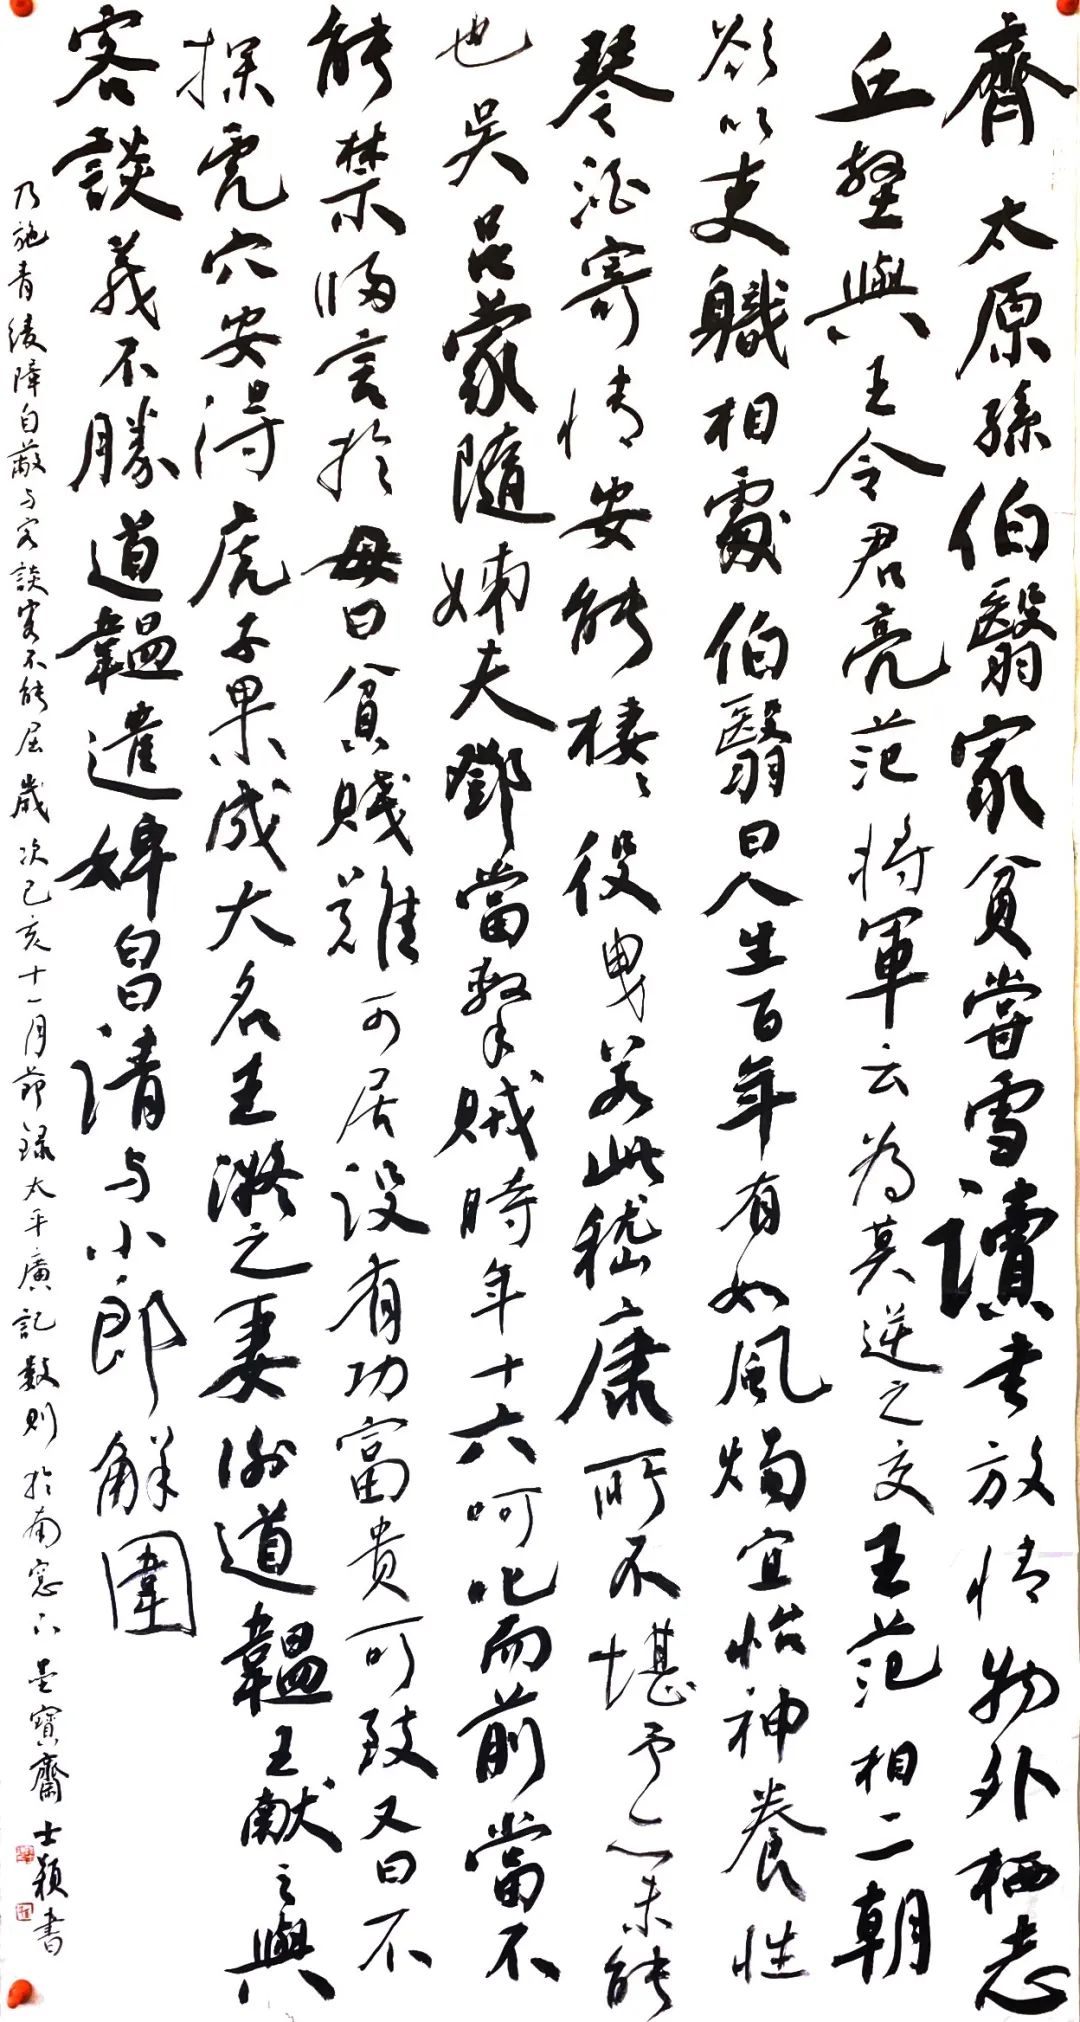 齊太原孫伯翳家貧嘗雪讀書放情物外栖志
丘壑與王令君亮范將軍云為莫逆之交王范相二朝
欲以吏職相處伯翳曰人生百年有如風燭宜怡神養性
琴酒寄情安能棲〻役曳若此嵇康所不堪予亦未能
也吳呂蒙隨姊夫鄧當擊賊時年十六呵叱而前當不
能禁歸言於母曰貧賤難可居設有功富貴可致又曰不
探虎穴安得虎子果成大名王凝之妻謝道韞王獻之與
客談義不勝道韞遣婢白曰請与小郎解圍
乃施青綾障自蔽与客談客不能屈歲次己亥十一月節錄太平廣記數則於南窓下墨寶齋士穎書